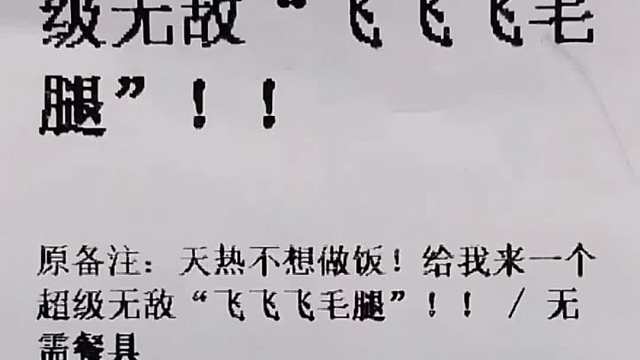 级无敌“飞飞飞毛
腿”！！
原备注：天热不想做饭！给我来一个
超级无敌“飞飞飞毛腿”！！ / 无
需餐具